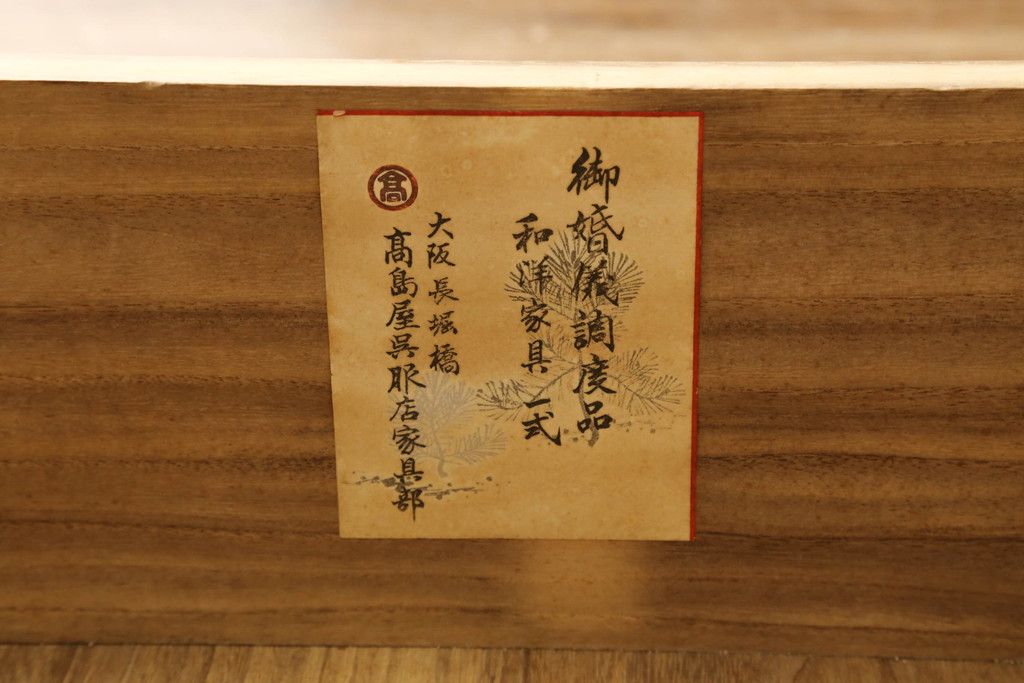 御婚儀調度品
和洋家具一式
大阪長堀橋
髙島屋呉服店家具部
髙